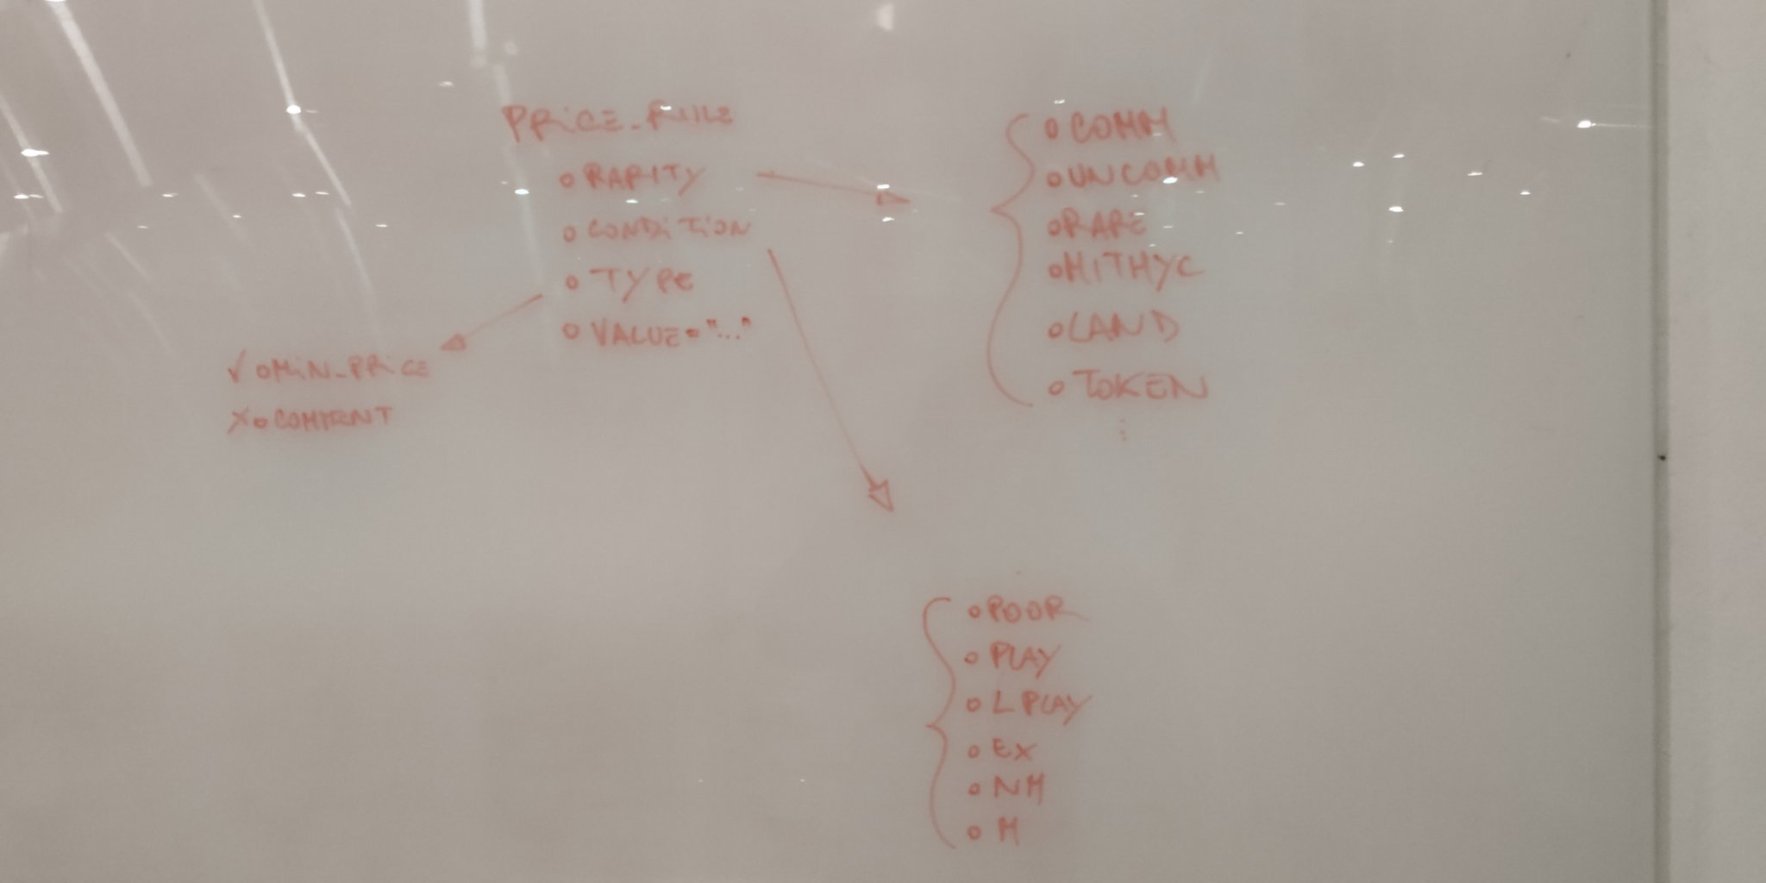 PRICE_RULE
o RARITY
o CONDITION
o TYPE
o VALUE = "..."
√ o MIN_PRICE
X o COMMENT
o COMM
o UNCOMM
o RARE
o MITHYC
o LAND
o TOKEN
⋮
o POOR
o PLAY
o L PLAY
o EX
o NM
o M